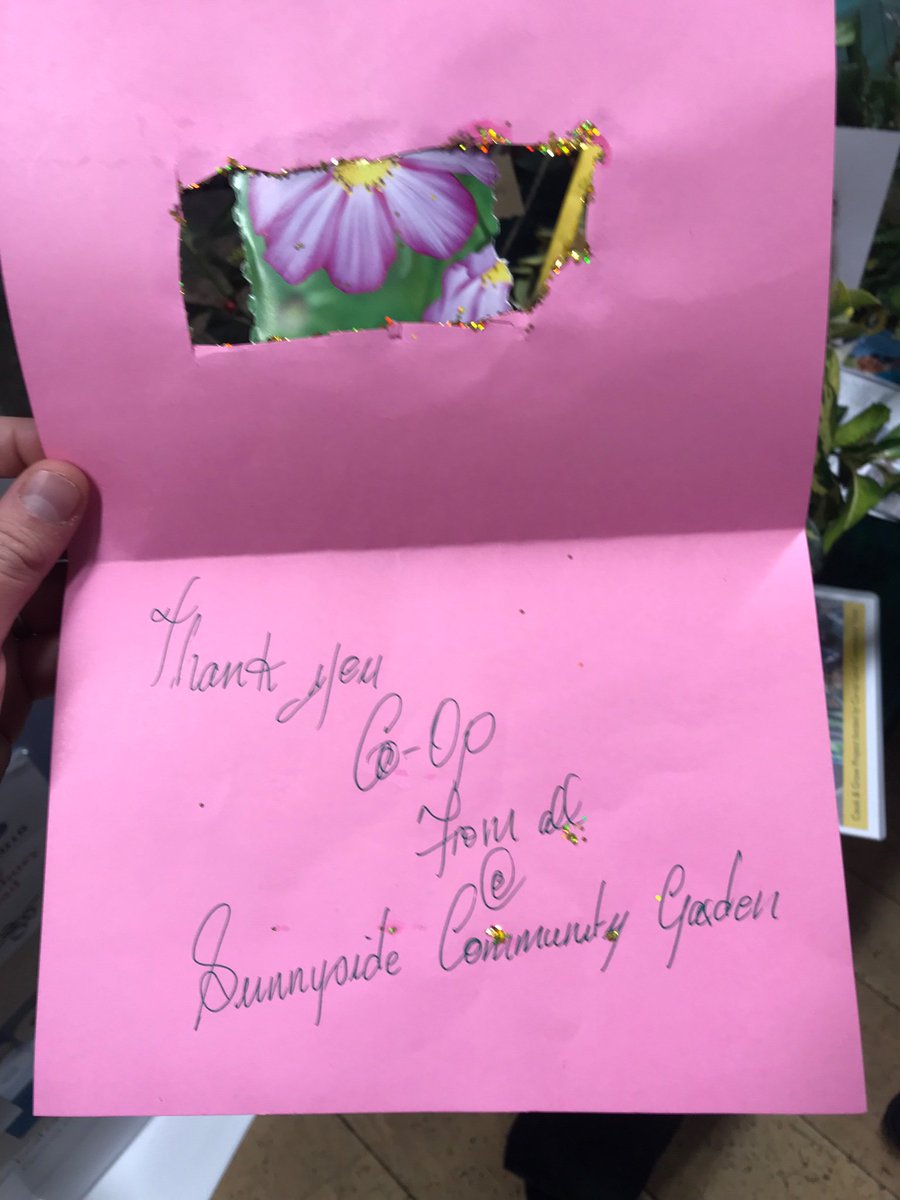 Thank you
Co-Op
From all
@
Sunnyside Community Garden